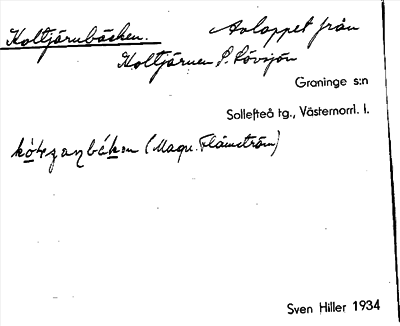 Koltjärnbäcken. Avloppet från
Koltjärnen S. Lövsjön
Graninge s:n
Sollefteå tg., Västernorrl. l.
(Magn. Flämström)
Sven Hiller 1934